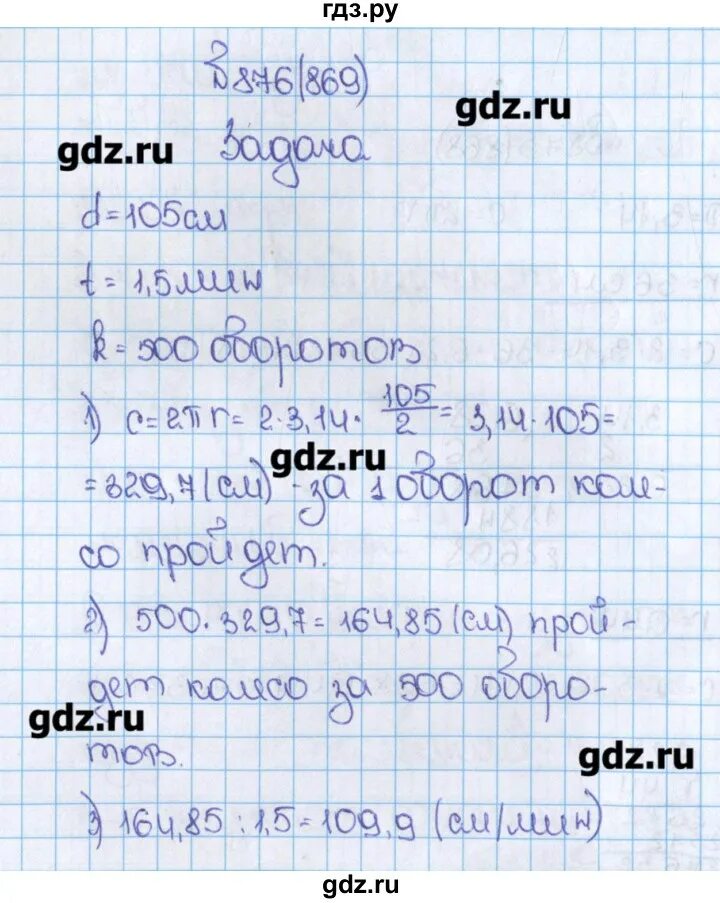 гдз.ру
№ 876 (869)
gdz.ru
gdz.ru
Задача
d = 105 см
t = 1,5 мин
k = 500 оборотов
1) c = 2πr = 2 · 3,14 · 105/2 = 3,14 · 105 =
gdz.ru
= 329,7 (см) - за 1 оборот коле-
со пройдет.
2) 500 · 329,7 = 164,85 (см) прой-
дет колесо за 500 оборо-
gdz.ru
тов.
gdz.ru
3) 164,85 : 1,5 = 109,9 (см/мин)
gdz.ru